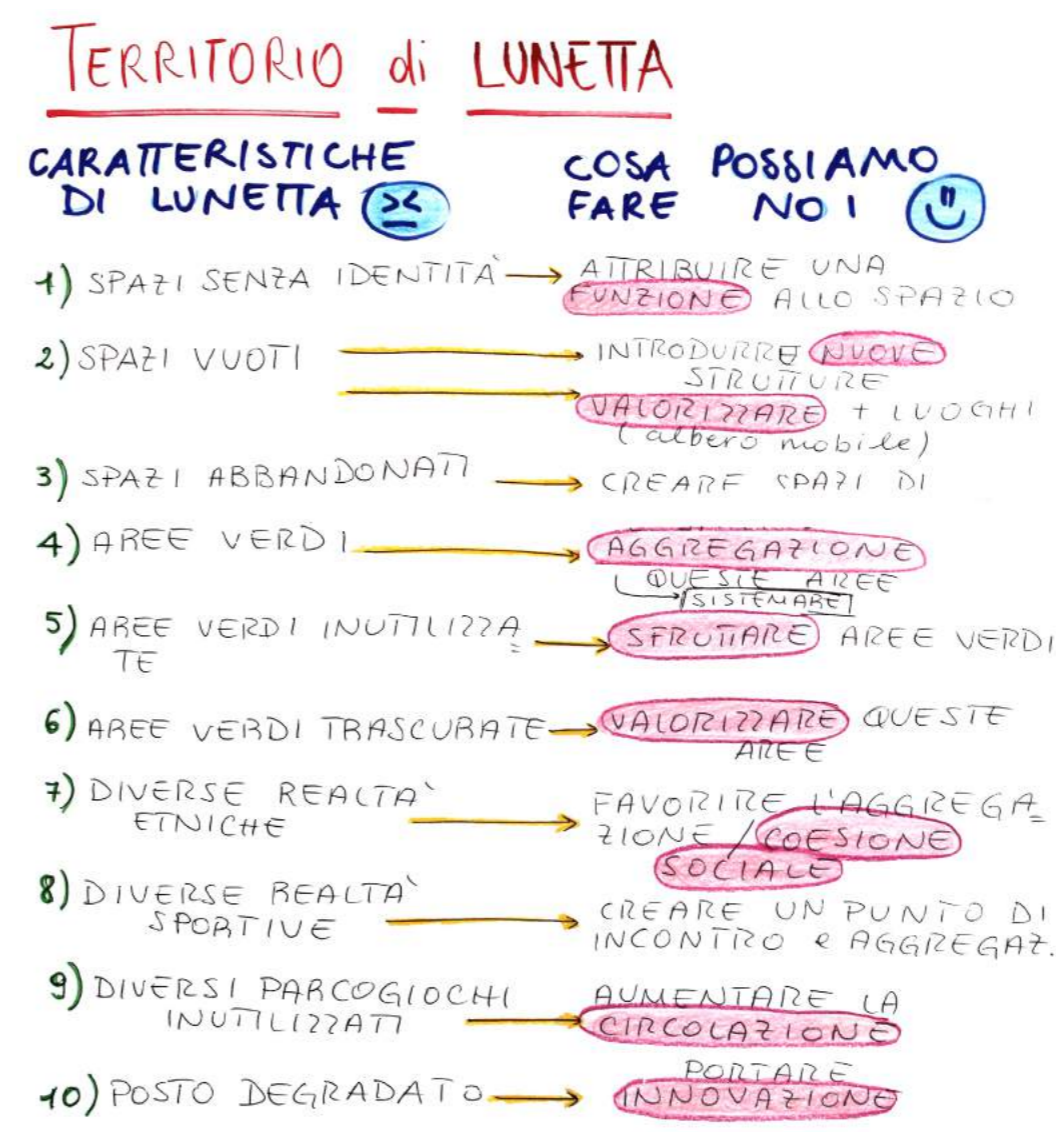 TERRITORIO di LUNETTA
CARATTERISTICHE
DI LUNETTA
COSA POSSIAMO
FARE NOI
1) SPAZI SENZA IDENTITÀ
ATTRIBUIRE UNA
FUNZIONE ALLO SPAZIO
2) SPAZI VUOTI
INTRODURRE NUOVE
STRUTTURE
VALORIZZARE + LUOGHI
(albero mobile)
3) SPAZI ABBANDONATI
CREARE SPAZI DI
4) AREE VERDI
AGGREGAZIONE
QUESTE AREE
SISTEMARE
5) AREE VERDI INUTILIZZA
TE
SFRUTTARE AREE VERDI
6) AREE VERDI TRASCURATE
VALORIZZARE QUESTE
AREE
7) DIVERSE REALTA'
ETNICHE
FAVORIRE L'AGGREGA
ZIONE / COESIONE
SOCIALE
8) DIVERSE REALTA'
SPORTIVE
CREARE UN PUNTO DI
INCONTRO e AGGREGAZ.
9) DIVERSI PARCOGIOCHI
INUTILIZZATI
AUMENTARE LA
CIRCOLAZIONE
10) POSTO DEGRADATO
PORTARE
INNOVAZIONE